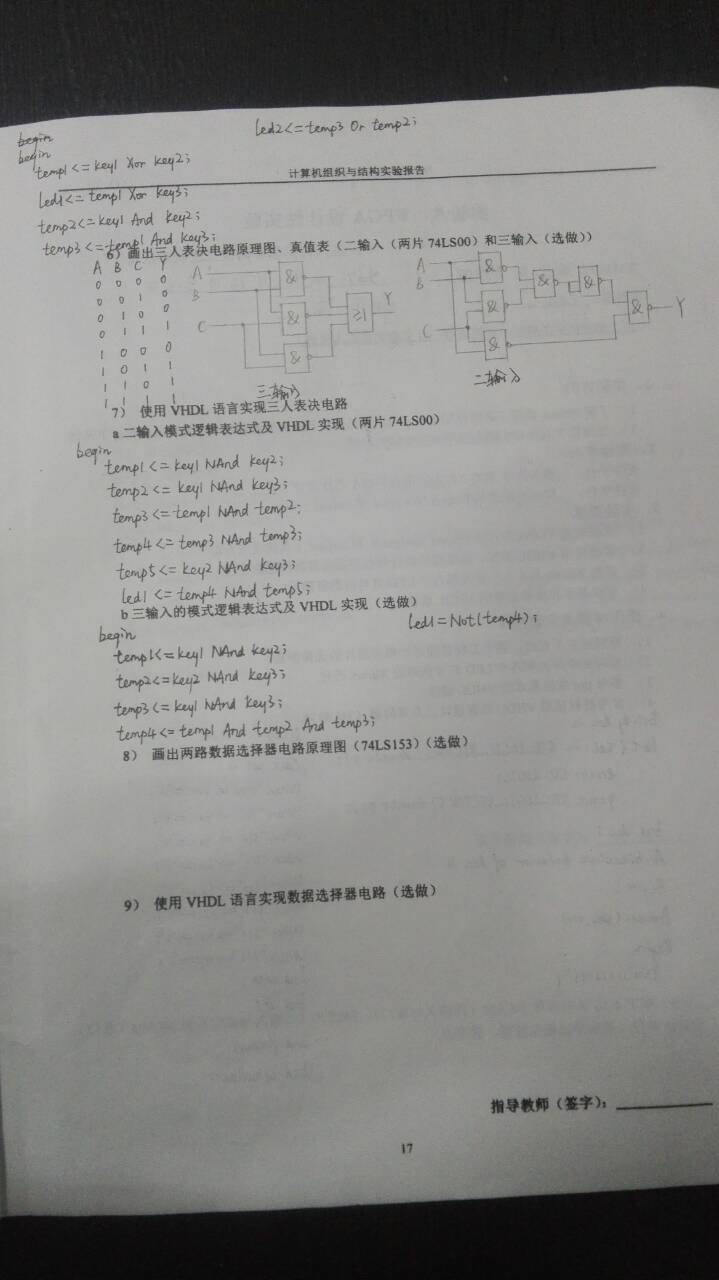 begin
begin
led2<=temp3 Or temp2;
temp1<=key1 Xor key2;
计算机组织与结构实验报告
led1<=temp1 Xor key3;
temp2<=key1 And key2;
temp3<=temp1 And key3;
6）画出三人表决电路原理图、真值表（二输入（两片 74LS00）和三输入（选做））
A B C Y
0 0 0 0
0 0 1 0
0 1 0 0
0 1 1 1
1 0 0 0
1 0 1 1
1 1 0 1
1 1 1 1
A
B
C
&
&
&
≥1
Y
三输入
A
B
C
&
&
&
&
&
&
Y
二输入
7） 使用 VHDL 语言实现三人表决电路
a 二输入模式逻辑表达式及 VHDL 实现（两片 74LS00）
begin
temp1<=key1 NAnd key2;
temp2<=key1 NAnd key3;
temp3<=temp1 NAnd temp2;
temp4<=temp3 NAnd temp3;
temp5<=key2 NAnd key3;
led1<=temp4 NAnd temp5;
b 三输入的模式逻辑表达式及 VHDL 实现（选做）
begin
led1=Not(temp4);
temp1<=key1 NAnd key2;
temp2<=key2 NAnd key3;
temp3<=key1 NAnd key3;
temp4<=temp1 And temp2 And temp3;
8） 画出两路数据选择器电路原理图（74LS153）（选做）
9） 使用 VHDL 语言实现数据选择器电路（选做）
指导教师（签字）：
17